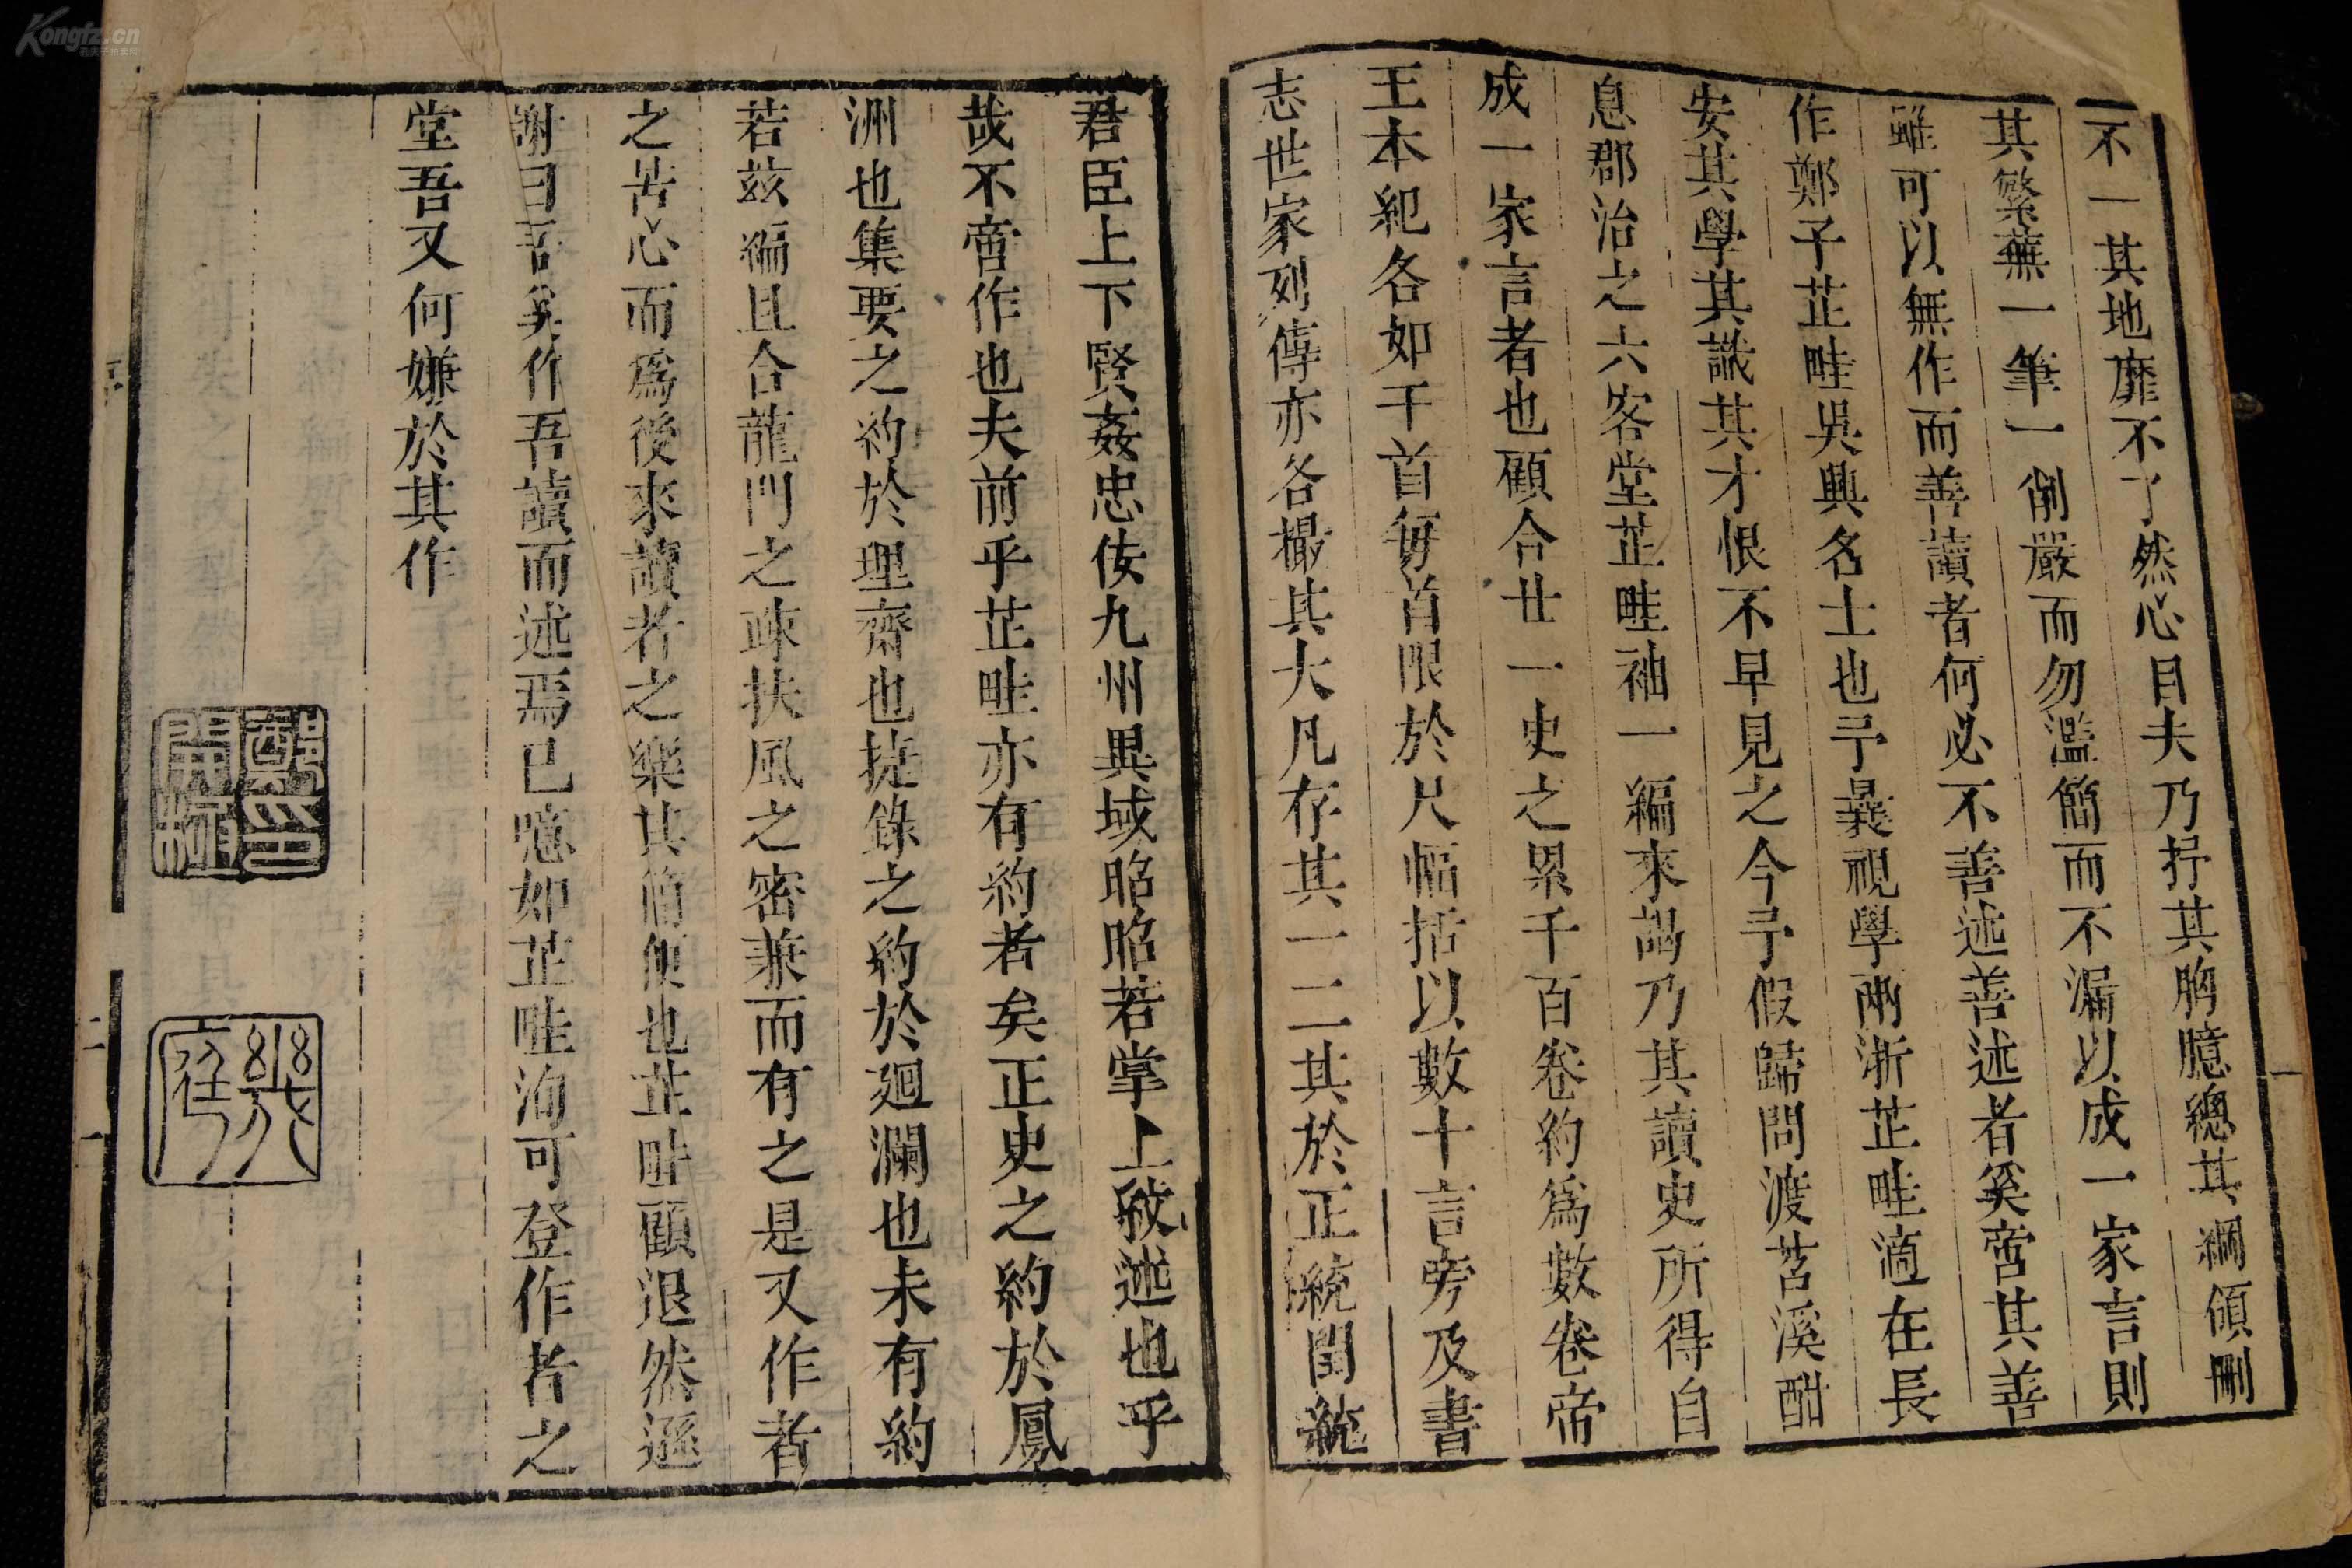 不一其地靡不了然心目夫乃抒其胸臆總其綱領刪
其繁蕪一筆一削嚴而勿濫簡而不漏以成一家言則
雖可以無作而善讀者何必不善述善述者奚啻其善
作鄭子芷畦吳興名士也予曩視學兩浙芷畦適在長
安其學其識其才恨不早見之今予假歸問渡苕溪酣
息郡治之六客堂芷畦袖一編來謁乃其讀史所得自
成一家言者也顧合廿一史之累千百卷約為數卷帝
王本紀各如干首每首限於尺幅括以數十言旁及書
志世家列傳亦各撮其大凡存其一二其於正統閏統
君臣上下賢姦忠佞九州異域昭昭若掌上敘述也乎
哉不啻作也夫前乎芷畦亦有約者矣正史之約於鳳
洲也集要之約於理齋也捷錄之約於廻瀾也未有約
若茲編且合龍門之疎扶風之密兼而有之是又作者
之苦心而為後來讀者之樂其簡便也芷畦顧退然遜
謝曰吾奚作吾讀而述焉已噫如芷畦洵可登作者之
堂吾又何嫌於其作
鄭印
開極
幾庭
序
二
一
Kongfz.cn